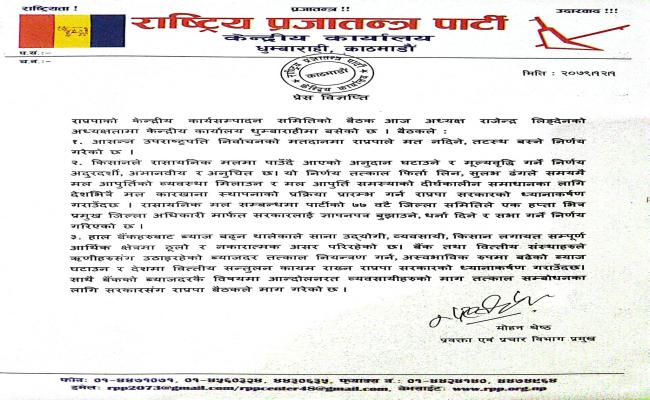 राष्ट्रियता !
प्रजातन्त्र !!
उदारवाद !!!
राष्ट्रिय प्रजातन्त्र पार्टी
केन्द्रीय कार्यालय
धुम्बाराही, काठमाडौं
प.सं.:-
च.नं.:-
राष्ट्रिय प्रजातन्त्र पार्टी
काठमाडौं
केन्द्रिय कार्यालय
मिति : २०७९।१२।१
प्रेस विज्ञप्ति
राप्रपाको केन्द्रीय कार्यसम्पादन समितिको बैठक आज अध्यक्ष राजेन्द्र लिङ्देनको
अध्यक्षतामा केन्द्रीय कार्यालय धुम्बाराहीमा बसेको छ । बैठकले :
१. आसन्न उपराष्ट्रपति निर्वाचनको मतदानमा राप्रपाले मत नदिने, तटस्थ बस्ने निर्णय
गरेको छ ।
२. किसानले रासायनिक मलमा पाउँदै आएको अनुदान घटाउने र मूल्यवृद्धि गर्ने निर्णय
अदुरदर्शी, अमानवीय र अनुचित छ। यो निर्णय तत्काल फिर्ता लिन, सुलभ ढंगले समयमै
मल आपुर्तिको व्यवस्था मिलाउन र मल आपुर्ति समस्याको दीर्घकालीन समाधानका लागि
देशभित्रै मल कारखाना स्थापनाको प्रक्रिया प्रारम्भ गर्न राप्रपा सरकारको ध्यानाकर्षण
गराउँदछ । रासायनिक मल सम्बन्धमा पार्टीको ७७ वटै जिल्ला समितिले एक हप्ता भित्र
प्रमुख जिल्ला अधिकारी मार्फत सरकारलाई ज्ञापनपत्र बुझाउने, धर्ना दिने र सभा गर्ने निर्णय
गरिएको छ ।
३. हाल बैंकहरुबाट ब्याज बढ्न थालेकाले साना उद्योगी, व्यवसायी, किसान लगायत सम्पूर्ण
आर्थिक क्षेत्रमा ठूलो र नकारात्मक असर परिरहेको छ। बैंक तथा वित्तीय संस्थाहरुले
ऋणीहरुसंग उठाइरहेको ब्याजदर तत्काल नियन्त्रण गर्न, अस्वभाविक रुपमा बढेको ब्याज
घटाउन र देशमा वित्तीय सन्तुलन कायम राख्न राप्रपा सरकारको ध्याकर्षण गराउँदछ।
साथै बैंकको ब्याजदरकै विषयमा आन्दोलनरत व्यवसायीहरुको माग तत्काल सम्बोधनका
लागि सरकारसंग राप्रपा बैठकले माग गरेको छ ।
मोहन श्रेष्ठ
प्रवक्ता एवं प्रचार विभाग प्रमुख
फोन: ०१-४४७१०७१, ०१-४५६०३२४, ४४३०६३५, फ्याक्स नं.: ०१-४४२४१४०, ४४७४५६४
इमेल: rpp2073@gmail.com/rppcenter48@gmail.com, वेभसाईट: www.rpp.org.np